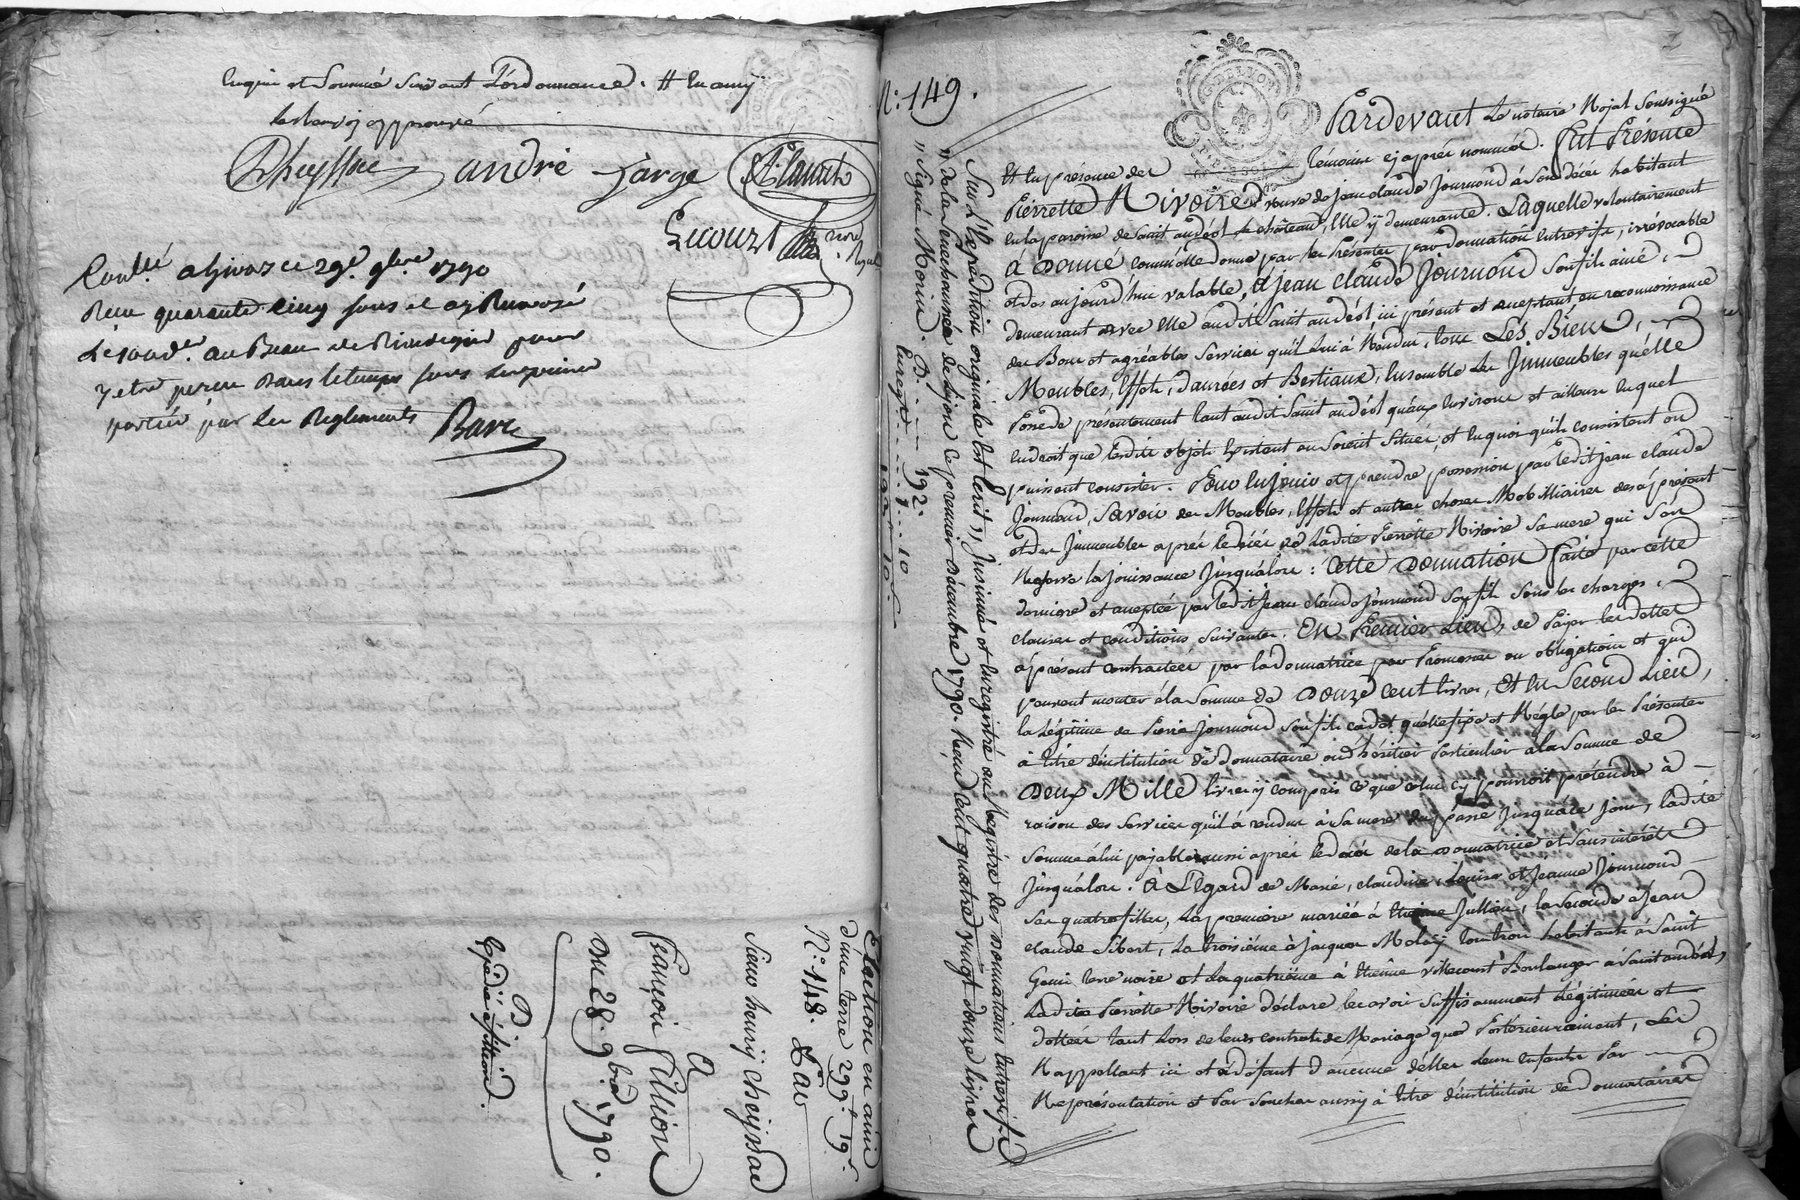 requis et sommé suivant l'ordonnance. # en amy
approuvé
Cheyssac andré farge
Lecourt
Conllé a givors ce 29e. 9bre 1790
Reçu quarante cinq sous et ay renvoyé
au Bureau de pour
y etre perçu dans le temps sous les peines
portées par les Reglements Bare
Election en ami
d'une terre 29 9bre 19s
N.° 148. Par
Sieur henrÿ cheÿssac
A
François fillion
Du 28. 9bre 1790.
D.
Expédié à fillion.
N.° 149.
Sur l'Expédition originale est écrit, Insinué et enregistré au Registre des donnations entrevifs
de la senechaussée de Lÿon le premier décembre 1790. Reçu cent quatre vingt douze livres
signé Morieu. D. . . . 192.
Enregt . . . . 1 . . 10
194 . . 10s
Pardevant Le notaire Roÿal soussigné
Et en présence des témoins cy après nommés. Fut Présente
Pierrette Rivoire veuve de jean claude Journoud à son décès habitant
en la paroisse de saint andéol le château, elle y demeurante. Laquelle volontairement
à Donné comme elle donne par les Présentes par donnation entrevifs, irrévocable
et des aujourd'hui valable, à jean claude Journoud son fils ainé,
demeurant avec elle audit saint andéol ici présent et acceptant en reconnoissance
des Bons et agréables services qu'il lui à Rendus, tous Les Biens,
Meubles, Effets, Danrées et Bestiaux, Ensemble les Immeubles qu'elle
Possede présentement tant audit saint andéol qu'aux Environs et ailleurs en quel
endroit que lesdits objets Existent ou soient situés, et en quoi qu'ils consistent ou
puissent consister. Pour en jouir et prendre possession par ledit jean claude
Journoud, savoir des Meubles, Effets et autres choses Mobilliaires dès à présent
et des Immeubles après le décès de Ladite Pierrette Rivoire sa mere qui s'en
Réserve la jouissance Jusqu'alors : Cette Donnation faite par cette
derniere et acceptée par ledit jean claude Journoud son fils sous les charges,
clauses et conditions suivantes. En Premier Lieu, de Payer les dettes
à présent contractées par la donnatrice par Promesses ou obligations et qui
peuvent monter à la somme de Douze cent livres, Et en Second Lieu,
la Légitime de Pierre Journoud son fils cadet qu'elle fixe et Régle par les Présentes
à titre d'institution de donnataire ou d'héritier Particulier à la somme de
Deux Mille livres y compris ce que celui cy pourroit prétendre à
raison des services qu'il à rendus à sa mere du passé Jusqu'à ce jour, ladite
somme à lui payable aussi après le décès de la donnatrice et sans intérêts
Jusqu'alors. à L'égard de Marie, claudine, Louise et Jeanne Journoud
ses quatre filles, La premiere mariée à Etienne Jullien, la seconde à Jean
claude Sibert, La troisiéme à jaques Molaÿ tous trois habitants à saint
Genis terre noire et La quatriéme à Etiéne Villecourt Boulanger à saint andéol,
Ladite Pierrette Rivoire déclare les avoir suffisamment Légitimées et
dottées tant Lors de leurs contrats de Mariage que Postérieurement, Les
Rappellant ici et à défaut d'aucunes d'elles leurs enfants Par
Représentation et Par souches aussÿ à titre d'institution de Donnataires